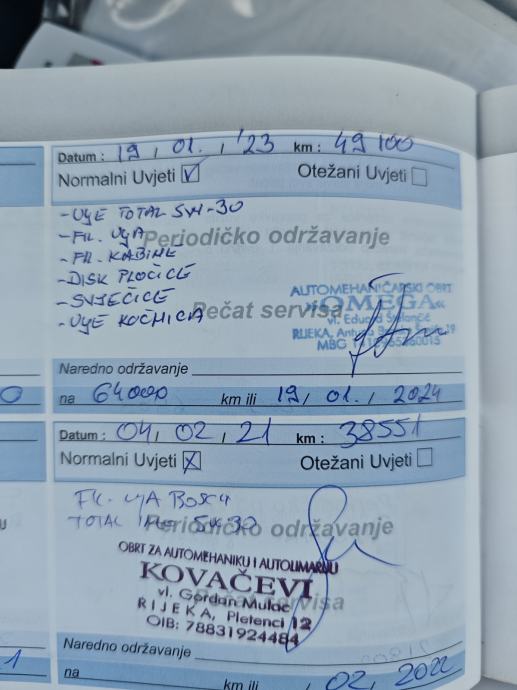 Datum : 19 , 01. , '23 km : 49 100
Normalni Uvjeti Otežani Uvjeti
- ULJE TOTAL 5W-30
- FIL. ULJA
Periodičko održavanje
- FIL. KABINE
- DISK PLOČICE
- SVJEČICE
AUTOMEHANIČARSKI OBRT
»OMEGA«
Pečat servisa
- ULJE KOČNICA
vl. Eduard
RIJEKA, 19
MBG
Naredno održavanje
na 64000 km ili 19, 01. , 2024
0
Datum : 04, 02, 21 km : 38551
Normalni Uvjeti Otežani Uvjeti
FIL. ULJA BOSCH
TOTAL 5W30
Periodičko održavanje
OBRT ZA AUTOMEHANIKU I AUTOLIMARIJU
KOVAČEVI
vl. Gordan Mulac
Pečat servisa
RIJEKA, Pletenci 12
OIB: 78831924484
Naredno održavanje
na km ili , 02, 2022
1